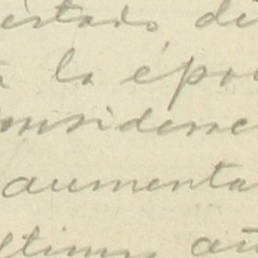 estado de
a la épo
considere
aumenta
ltimos añ